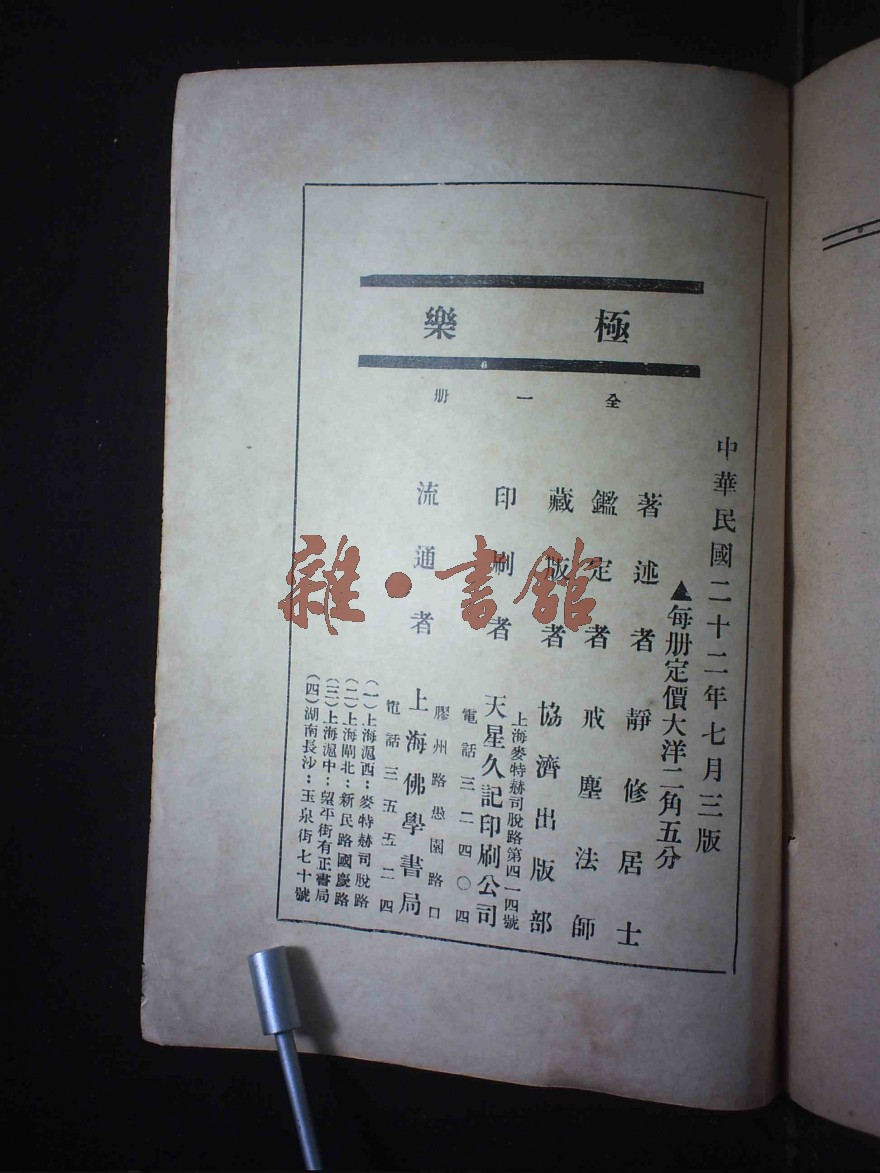 極樂
全一册
中華民國二十二年七月三版
▲每册定價大洋二角五分
著述者 靜修居士
鑑定者 戒塵法師
藏版者 協濟出版部
上海麥特赫司脫路第四一四號
印刷者 天星久記印刷公司
電話三二四〇四
膠州路愚園路口
流通者 上海佛學書局
電話三五五二四
(一)上海滬西：麥特赫司脫路
(二)上海閘北：新民路國慶路
(三)上海滬中：望平街有正書局
(四)湖南長沙：玉泉街七十號
雜·書館